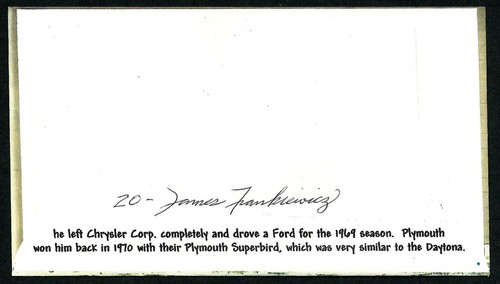 20 - James Frankiewicz
he left Chrysler Corp. completely and drove a Ford for the 1969 season. Plymouth
won him back in 1970 with their Plymouth Superbird, which was very similar to the Daytona.